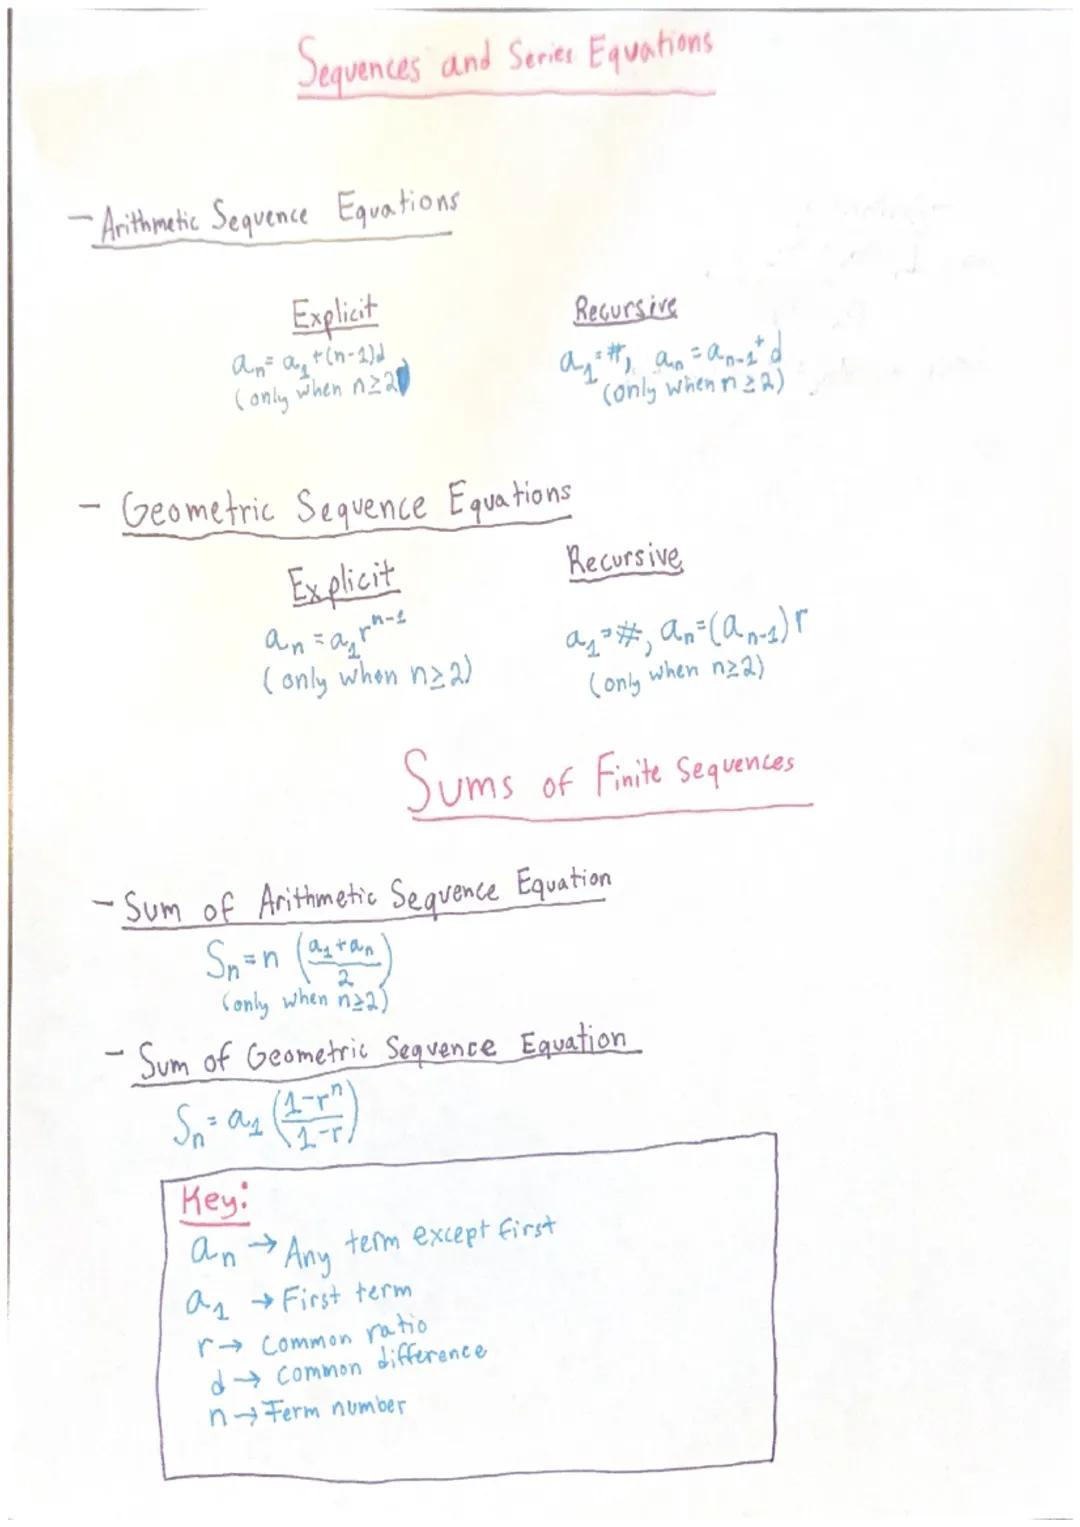 Sequences and Series Equations
- Arithmetic Sequence Equations
Explicit
aₙ = a₁ + (n-1)d
(only when n ≥ 2)
Recursive
a₁ = #, aₙ = aₙ₋₁ + d
(only when n ≥ 2)
- Geometric Sequence Equations
Explicit
aₙ = a₁rⁿ⁻¹
(only when n ≥ 2)
Recursive
a₁ = #, aₙ = (aₙ₋₁)r
(only when n ≥ 2)
Sums of Finite Sequences
- Sum of Arithmetic Sequence Equation
Sₙ = n ((a₁ + aₙ)/2)
(only when n ≥ 2)
- Sum of Geometric Sequence Equation
Sₙ = a₁ ((1-rⁿ)/(1-r))
Key:
aₙ → Any term except first
a₁ → First term
r → Common ratio
d → Common difference
n → Term number